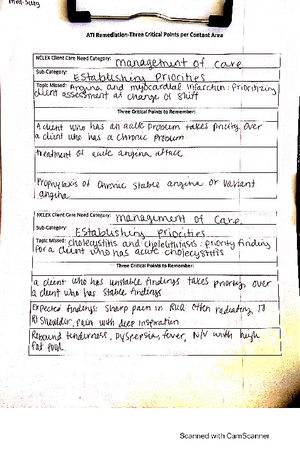 Med-Surg
ATI Remediation-Three Critical Points per Content Area
NCLEX Client Care Need Category: management of care
Sub-Category: Establishing Priorities
Topic Missed: Angina and myocardial infarction: prioritizing
client assessment at change of shift
Three Critical Points to Remember:
A client who has an acute problem takes priority over
a client who has a chronic problem
treatment of acute angina attack
Prophylaxis of chronic stable angina or variant
angina
NCLEX Client Care Need Category: management of care
Sub-Category: Establishing priorities
Topic Missed: cholecystitis and cholelithiasis: priority finding
for a client who has acute cholecystitis
Three Critical Points to Remember:
a client who has unstable findings takes priority over
a client who has stable findings
Expected findings: sharp pain in RUQ often radiating to
Rt shoulder, pain with deep inspiration
Rebound tenderness, dyspepsia, fever, N/V with high
fat food
Scanned with CamScanner